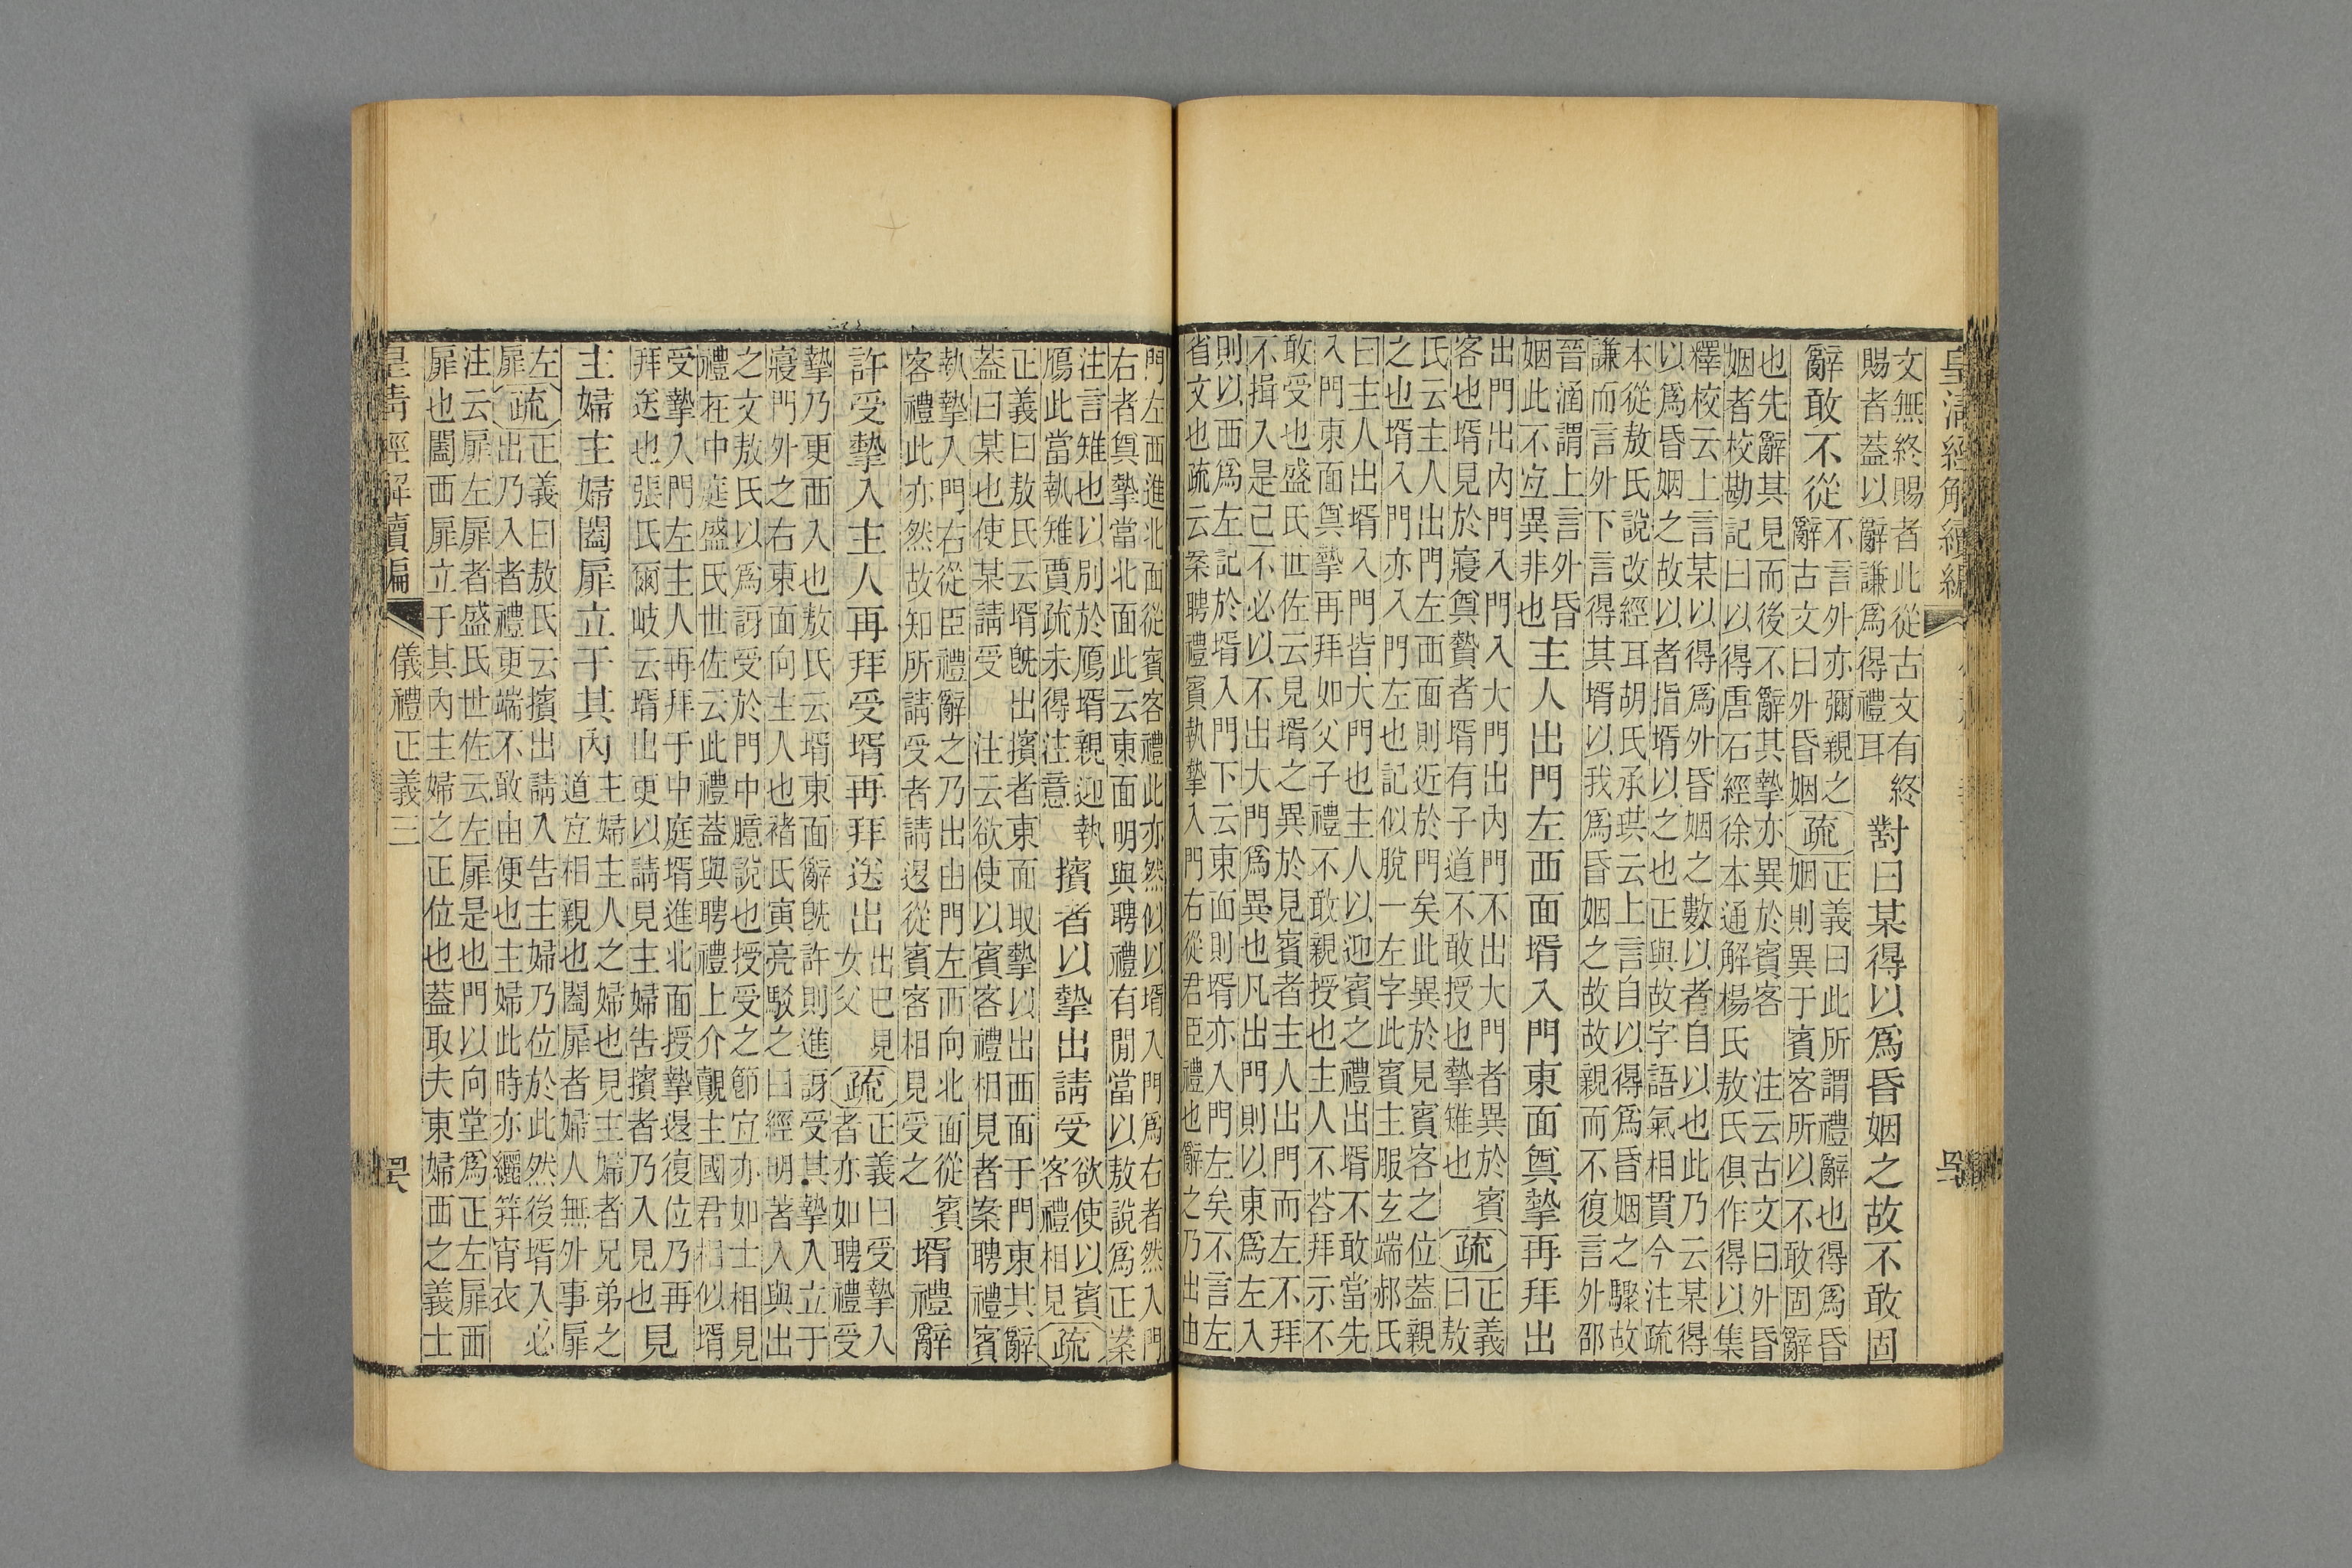 皇清經解續編
文無終賜者此從古文有終
賜者蓋以辭謙爲得禮耳
對曰某得以爲昏姻之故不敢固
辭敢不從
不言外亦彌親之
辭古文曰外昏姻
疏
正義曰此所謂禮辭也得爲昏
姻則異于賓客所以不敢固辭
也先辭其見而後不辭其摯亦異於賓客 注云古文曰外昏
姻者校勘記曰以得唐石經徐本通解楊氏敖氏俱作得以集
釋校云上言某以得爲外昏姻之數以者自以也此乃云某得
以爲昏姻之故以者指壻以之也正與故字語氣相貫今注疏
本從敖氏說改經耳胡氏承珙云上言自以得爲昏姻之驟故
謙而言外下言得其壻以我爲昏姻之故故親而不復言外邵
晉涵謂上言外昏
姻此不宐異非也
主人出門左西面壻入門東面奠摯再拜出
出門出內門入門入大門出內門不出大門者異於賓
客也壻見於寢奠贄者壻有子道不敢授也摯雉也
疏
正義
曰敖
氏云主人出門左西面則近於門矣此異於見賓客之位蓋親
之也壻入門亦入門左也記似脫一左字此賓主服玄端郝氏
曰主人出壻入門皆大門也主人以迎賓之禮出壻不敢當先
入門東面奠摯再拜如父子禮不敢親授也主人不荅拜示不
敢受也盛氏世佐云見壻之異於見賓者主人出門而左不拜
不揖入是已不必以不出大門爲異也凡出門則以東爲左入
則以西爲左記於壻入門下云東面則壻亦入門左矣不言左
省文也疏云案聘禮賓執摯入門右從君臣禮也辭之乃出由
門左西進北面從賓客禮此亦然似以壻入門爲右者然入門
右者奠摯當北面此云東面明與聘禮有閒當以敖說爲正案
注言雉也以別於鴈壻親迎執
鴈此當執雉賈疏未得注意
擯者以摯出請受
欲使以賓
客禮相見
疏
正義曰敖氏云壻旣出擯者東面取摯以出西面于門東其辭
蓋曰某也使某請受 注云欲使以賓客禮相見者案聘禮賓
執摯入門右從臣禮辭之乃出由門左而向北面從賓
客禮此亦然故知所請受者請退從賓客相見受之
壻禮辭
許受摯入主人再拜受壻再拜送出
出已見
女父
疏
正義曰受摯入
者亦如聘禮受
摯乃更西入也敖氏云壻東面辭旣許則進訝受其摯入立于
寢門外之右東面向主人也褚氏寅亮駁之曰經明著入與出
之文敖氏以爲訝受於門中臆說也授受之節宐亦如士相見
禮在中庭盛氏世佐云此禮蓋與聘禮上介覿主國君相似壻
受摯入門左主人再拜于中庭壻進北面授摯退復位乃再
拜送也張氏爾岐云壻出更以請見主婦告擯者乃入見也
見
主婦主婦闔扉立于其內
主婦主人之婦也見主婦者兄弟之
道宐相親也闔扉者婦人無外事扉
左
扉
疏
正義曰敖氏云擯出請入告主婦乃位於此然後壻入必
出乃入者禮更端不敢由便也主婦此時亦纚笄宵衣
注云扉左扉者盛氏世佐云左扉是也門以向堂爲正左扉西
扉也闔西扉立于其內主婦之正位也蓋取夫東婦西之義士
皇清經解續編 儀禮正義三